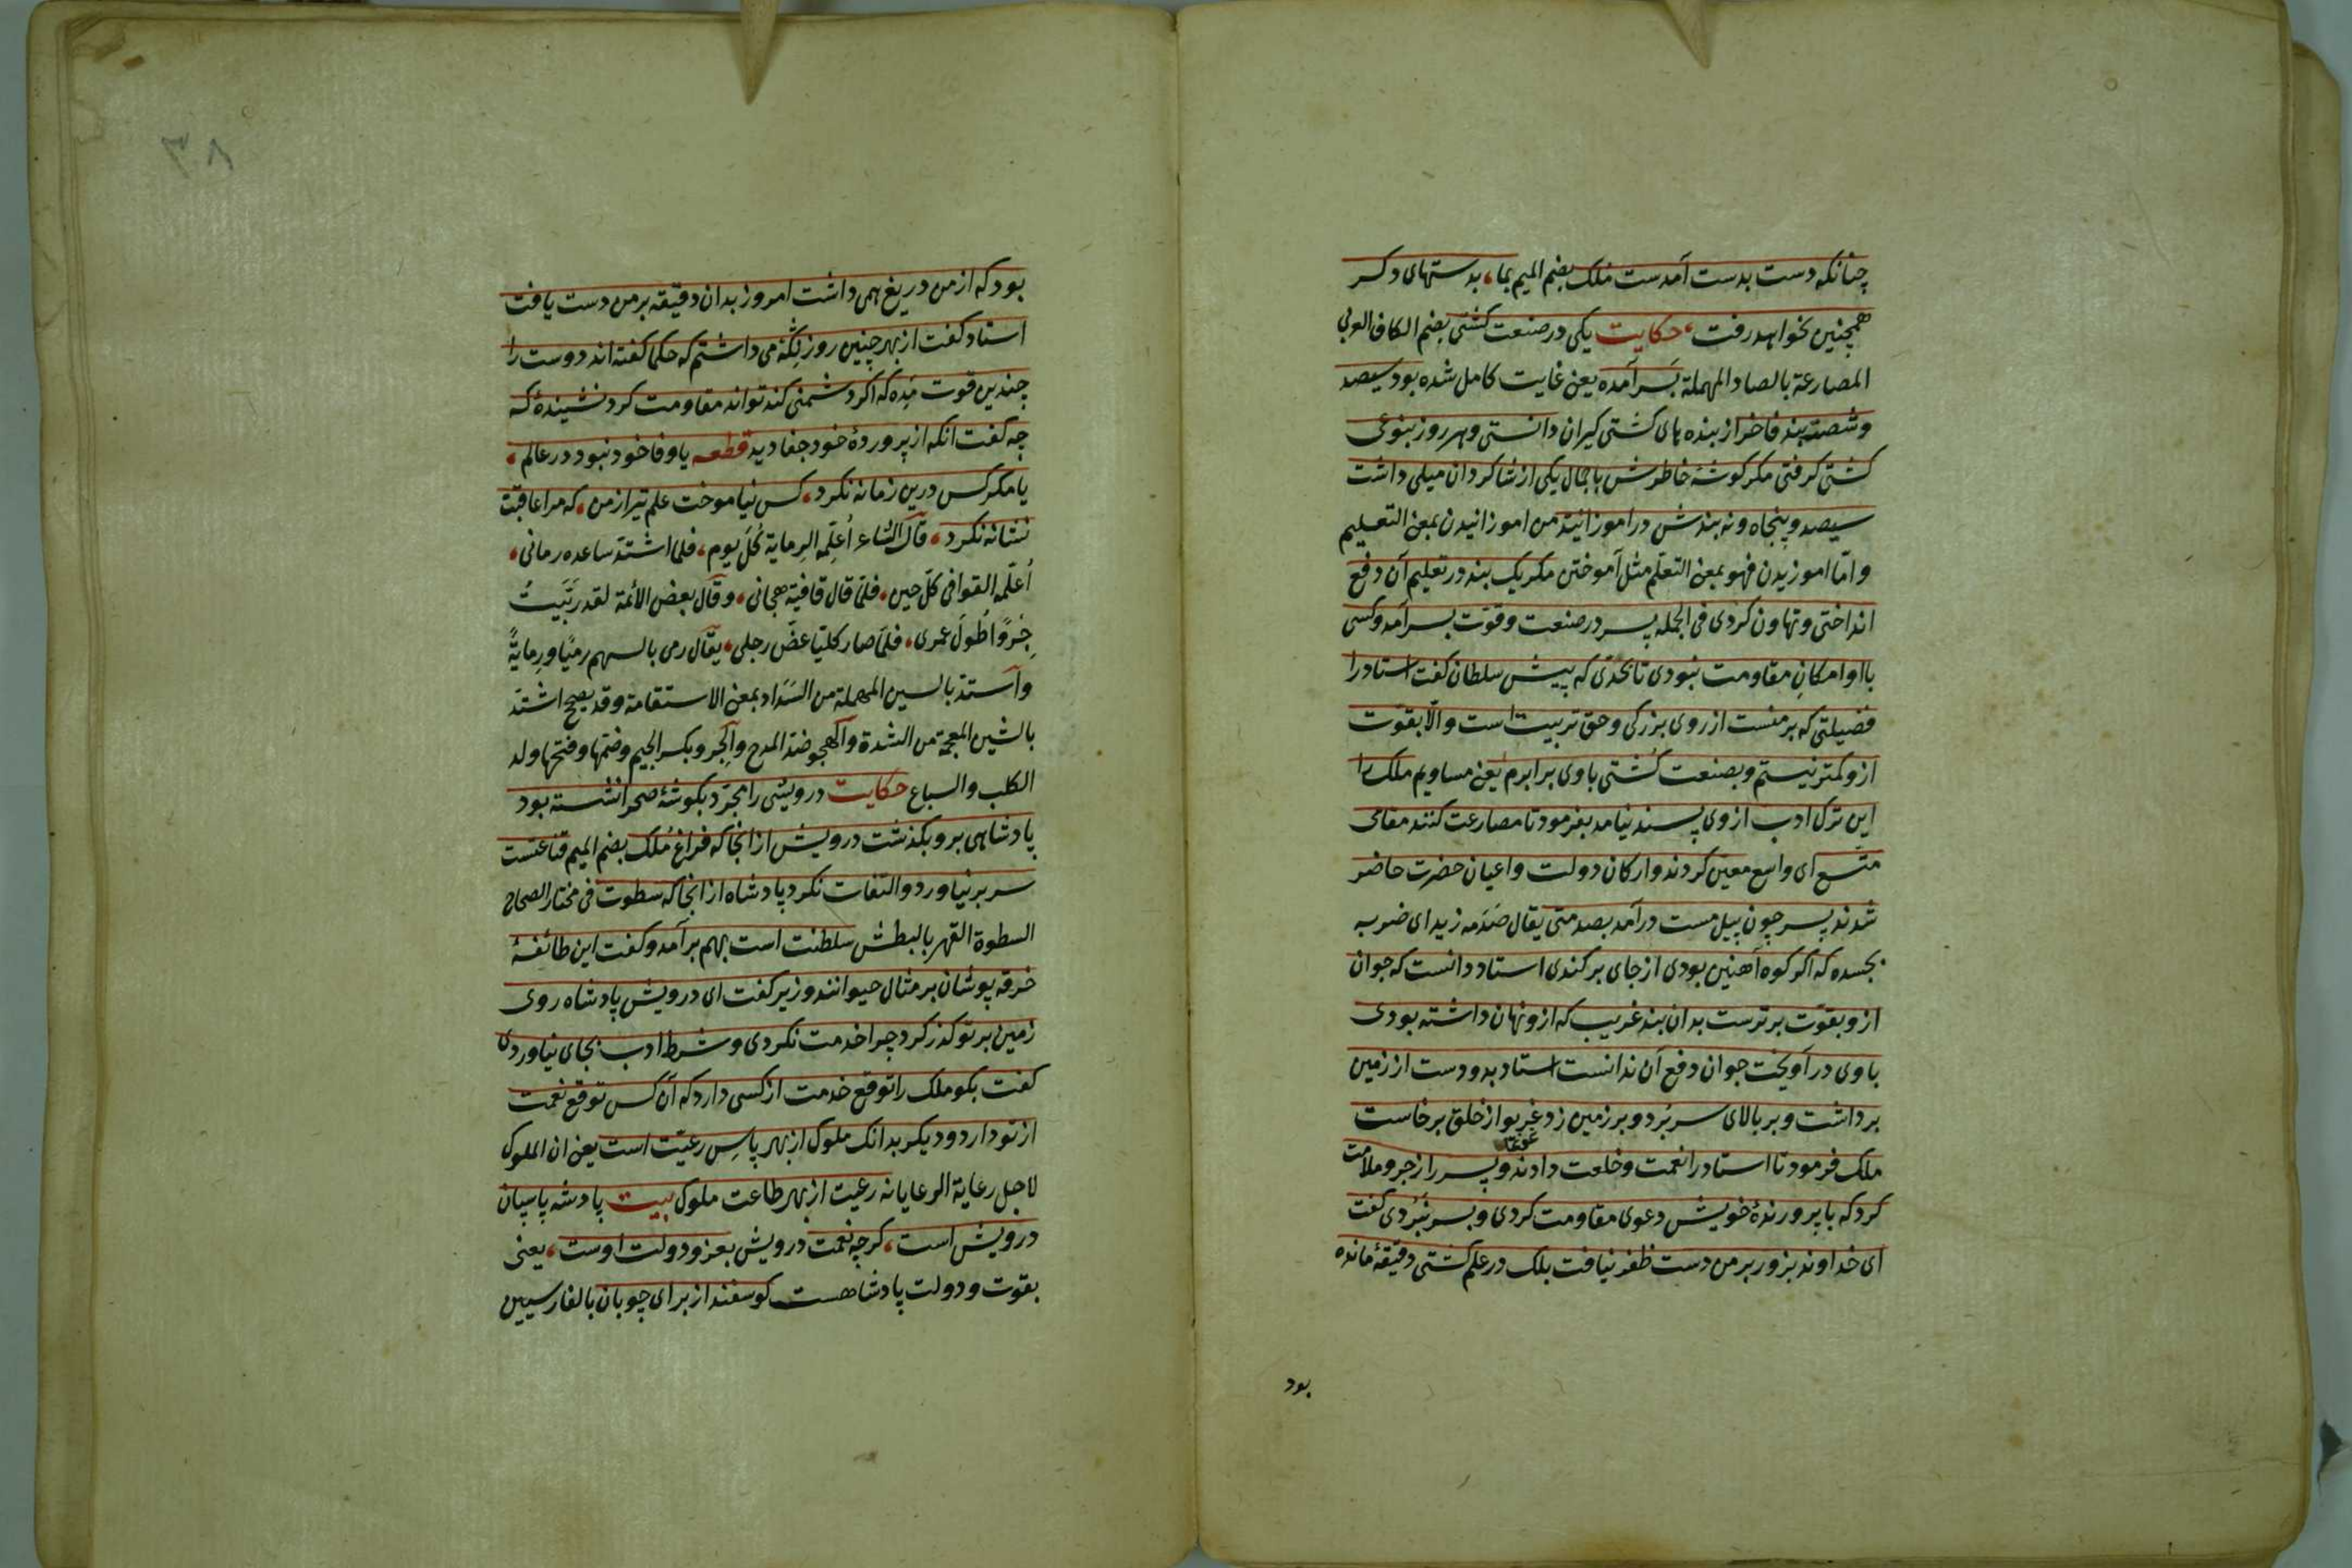 چنانکه دست بدست آمدست ملک بضم المیم بما، بدستهای دکر
همچنین نخواهد رفت، حکایت یکی در صنعت کشتی بضم الکاف العربی
المصارعة بالصاد المهملة بسرآمده یعنی غایت کامل شده بود سیصد
وشصت بند فاخر از بنده های کشتی کیران دانستی وهر روز بنوعی
کشتی کرفتی مکر کوشهٔ خاطرش با جمال یکی از شاکردان میلی داشت
سیصد وپنجاه ونه بندش در آموزانید من اموزانیدن بمعنی التعلیم
وامّا اموزیدن فهو بمعنی التعلّم مثل آموختن مکر یک بند در تعلیم آن دفع
انداختی وتهاون کردی فی الجمله پسر در صنعت وقوّت بسرآمد وکسی
با او امکان مقاومت نبودی تا بحدّی که پیش سلطان کفت استاد را
فضیلتی که بر منست از روی بزرکی وحق تربیت است والّا بقوّت
ازو کمتر نیستم وبصنعت کشتی با وی برابرم یعنی مساویم ملک را
این ترک ادب از وی پسند نیامد بفرمود تا مصارعت کنند مقامی
متّسع ای واسع معیّن کردند وارکان دولت واعیان حضرت حاضر
شدند پسر چون پیل مست درآمد بصدمتی یقال صَدَمه زید ای ضربه
بجسده که اکر کوه آهنین بودی از جای برکندی استاد دانست که جوان
ازو بقوّت برترست بدان بند غریب که ازو نهان داشته بودی
با وی درآویخت جوان دفع آن ندانست استاد بدو دست از زمین
برداشت وبر بالای سر بُرد وبر زمین زد غریو از خلق برخاست
غوغا
ملک فرمود تا استاد را نعمت وخلعت دادند وپسر را زجر وملامت
کرد که با پرورندهٔ خویش دعوی مقاومت کردی وبسر نبُردی کفت
ای خداوند بزور بر من دست ظفر نیافت بلک در علم کشتی دقیقهٔ مانده
بود
٣٨
بود که از من دریغ همی داشت امروز بدان دقیقه بر من دست یافت
استاد کفت از بهر چنین روز نکه می داشتم که حکما کفته اند دوست را
چندین قوت مَدِه که اکر دشمنی کند تواند مقاومت کرد نشنیدهٔ که
چه کفت انکه از پروردهٔ خود جفا دید قطعه یا وفا خود نبود در عالم،
یا مکر کس درین زمانه نکرد، کس نیاموخت علم تیر از من، که مرا عاقبت
نشانه نکرد، قال الشاعر اُعَلِّمه الرِمایة کُلَّ یوم، فلما اشتدّ ساعده رمانی،
اُعَلّمه القوافی کلّ حین، فلمّا قال قافیة هجانی، وقال بعض الأئمة لقد ربّیتُ
جِروًا طُولَ عمری، فلمّا صار کلبًا عضّ رجلی، یقال رمی بالسهم رمیًا ورِمایةً
واستدّ بالسین المهملة من السَدَاد بمعنی الاستقامة وقد یصح اشتدّ
بالشین المعجمة من الشدة والهجو ضدّ المدح والجِرو بکسر الجیم وضمها وفتحها ولد
الکلب والسباع حکایت درویشی را مجرّد بکوشهٔ صحرا نشسته بود
پادشاهی برو بکذشت درویش از انجا که فراغ مُلک بضم المیم قناعتست
سر بر نیاورد والتفات نکرد پادشاه از انجا که سطوت فی مختار الصحاح
السطوة القهر بالبطش سلطنت است بهم برآمد وکفت این طائفهٔ
خرقه پوشان بر مثال حیوانند وزیر کفت ای درویش پادشاه روی
زمین بر تو کذر کرد چرا خدمت نکردی وشرط ادب بجای نیاوردی
کفت بکو ملک را توقع خدمت از کسی دارد که آن کس توقع نعمت
از تو دارد ودیکر بدانک ملوک از بهر پاسِ رعیّت است یعنی ان الملوک
لاجل رعایة الرعایا نه رعیت از بهر طاعت ملوک بیت پادشه پاسبان
درویش است، کرچه نعمت درویش بعز ودولت اوست، یعنی
بقوت ودولت پادشاهست کوسفند از برای چوبان بالفارسیین